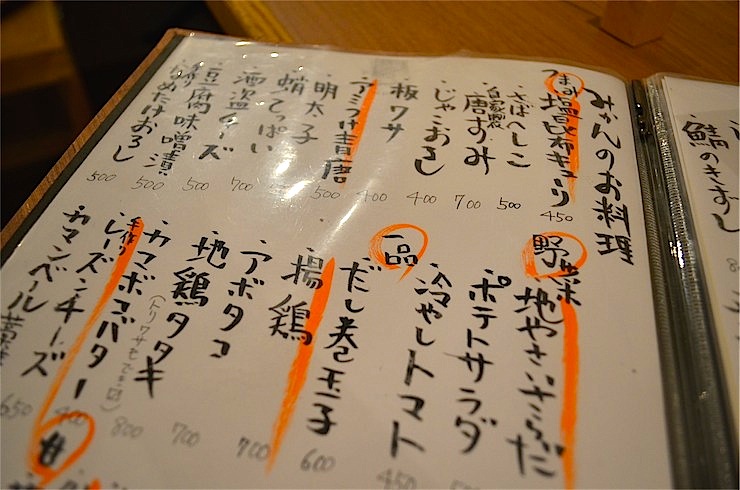 みかんのお料理
つまみ
塩昆布キューリ 450
・さばへしこ 500
・自家製 唐すみ 700
・じゃこおろし 400
・板ワサ 400
明太子 500
・蛸てっぱい
酒盗チーズ 700
・豆腐味噌漬 500
・手作りなめたけおろし 500
野菜
地やさいさらだ
・ポテトサラダ
・冷やしトマト 450
一品
だし巻玉子 600
・揚鶏 700
・アボタコ 700
・地鶏タタキ 800
(トリワサもできます)
・カマボコバター 400
・手作りレーズンチーズ 650
カマンベール
甘
鯖のきずし